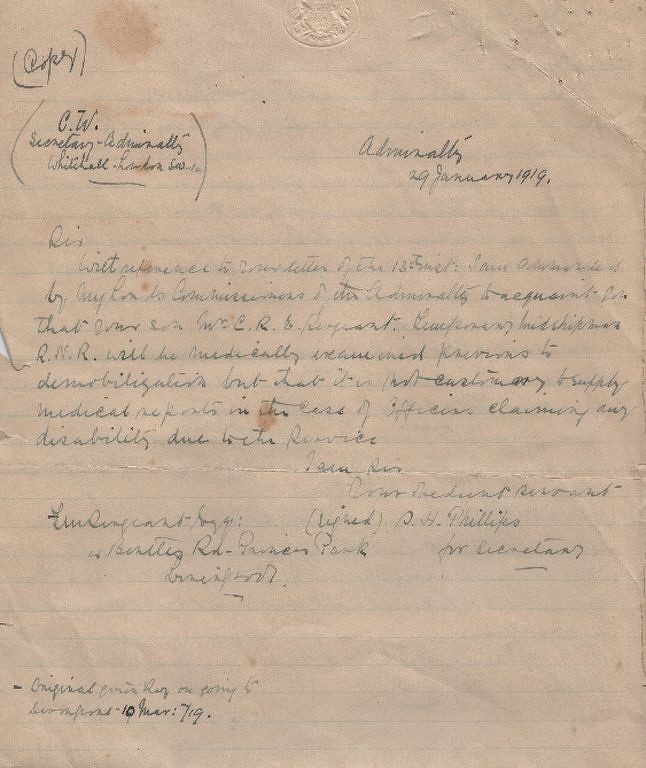 (Copy)
C.W.
Secretary - Admiralty
Whitehall - London
Admiralty
29 January 1919.
Sir
With reference to your letter of the 13th inst: I am commanded
by My Lords Commissioners of the Admiralty to acquaint you
that your son Mr C. R. E. Sergeant. Temporary midshipman
R.N.R. will be medically examined previous to
demobilization but that it is not customary to supply
medical reports in the case of officers claiming any
disability due to the Service
I am Sir
Your obedient servant
Sergeant Esqr: (signed) S. H. Phillips
Bentley Rd - Princes Park for Secretary
Liverpool.
- Original given Roy on going to
Devonport 10 Mar: /19.